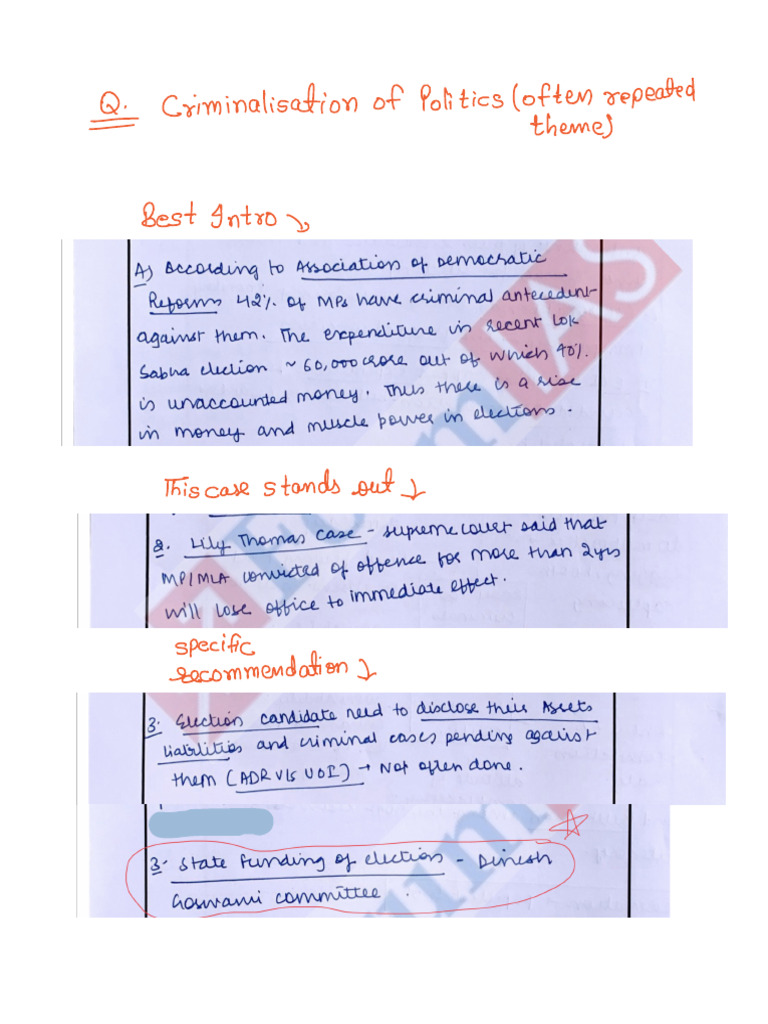 Q. Criminalisation of Politics (often repeated
theme)
Best Intro
A) According to Association of Democratic
Reforms 42% of MPs have criminal antecedent
against them. The expenditure in recent Lok
Sabha election ~ 60,000 crore out of which 40%
is unaccounted money. Thus there is a rise
in money and muscle power in elections.
This case stands out
2. Lily Thomas Case - Supreme Court said that
MP/MLA convicted of offence for more than 2yrs
will lose office to immediate effect.
specific
recommendation
3. Election candidate need to disclose their Assets
liabilities and criminal cases pending against
them (ADR V/s UOI) → Not often done.
3. State Funding of election - Dinesh
Goswami Committee.